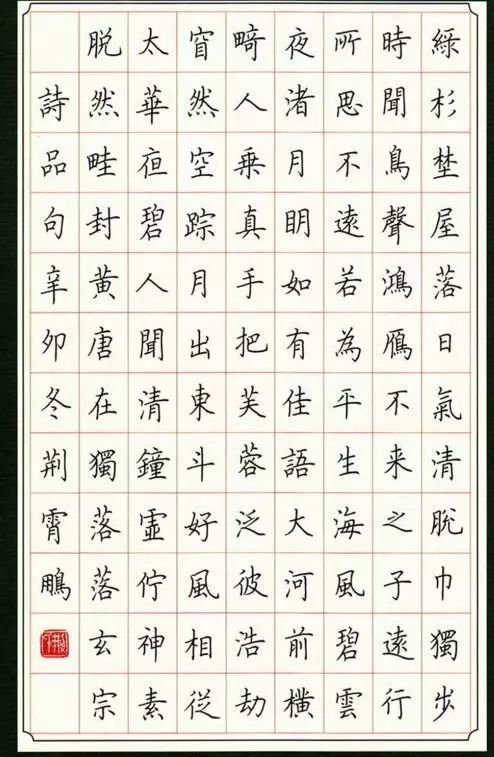 綠杉埜屋落日氣清脫巾獨步
時聞鳥聲鴻鴈不来之子遠行
所思不遠若為平生海風碧雲
夜渚月明如有佳語大河前橫
畸人乗真手把芙蓉泛彼浩劫
窅然空踪月出東斗好風相從
太華夜碧人聞清鐘虛佇神素
脫然畦封黃唐在獨落落玄宗
詩品句辛卯冬荊霄鵬